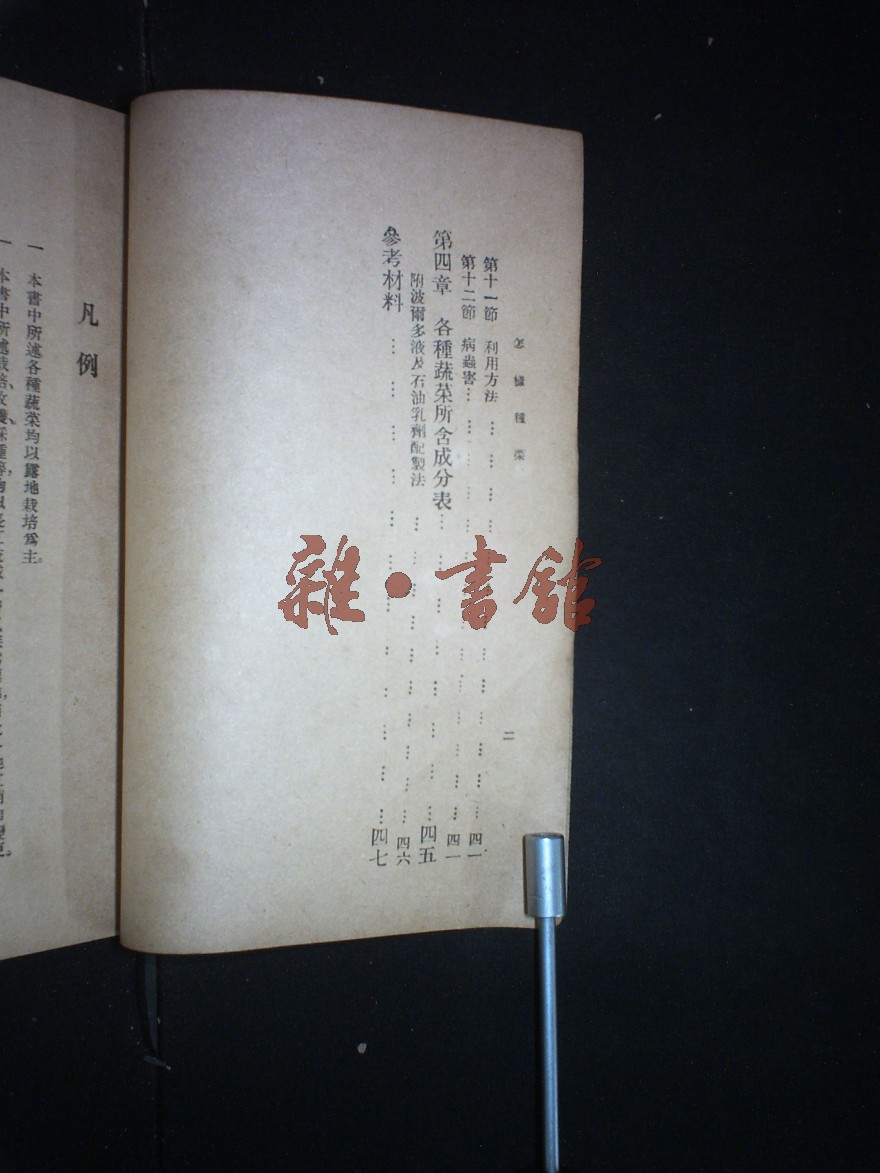 怎樣種菜
二
第十一節 利用方法 四一
第十二節 病蟲害 四一
第四章 各種蔬菜所含成分表 四五
附波爾多液及石油乳劑配製法 四六
參考材料 四七
凡例
一 本書中所述各種蔬菜均以露地栽培爲主。
一 本書中所述栽培、收穫、採種等
雜·書館